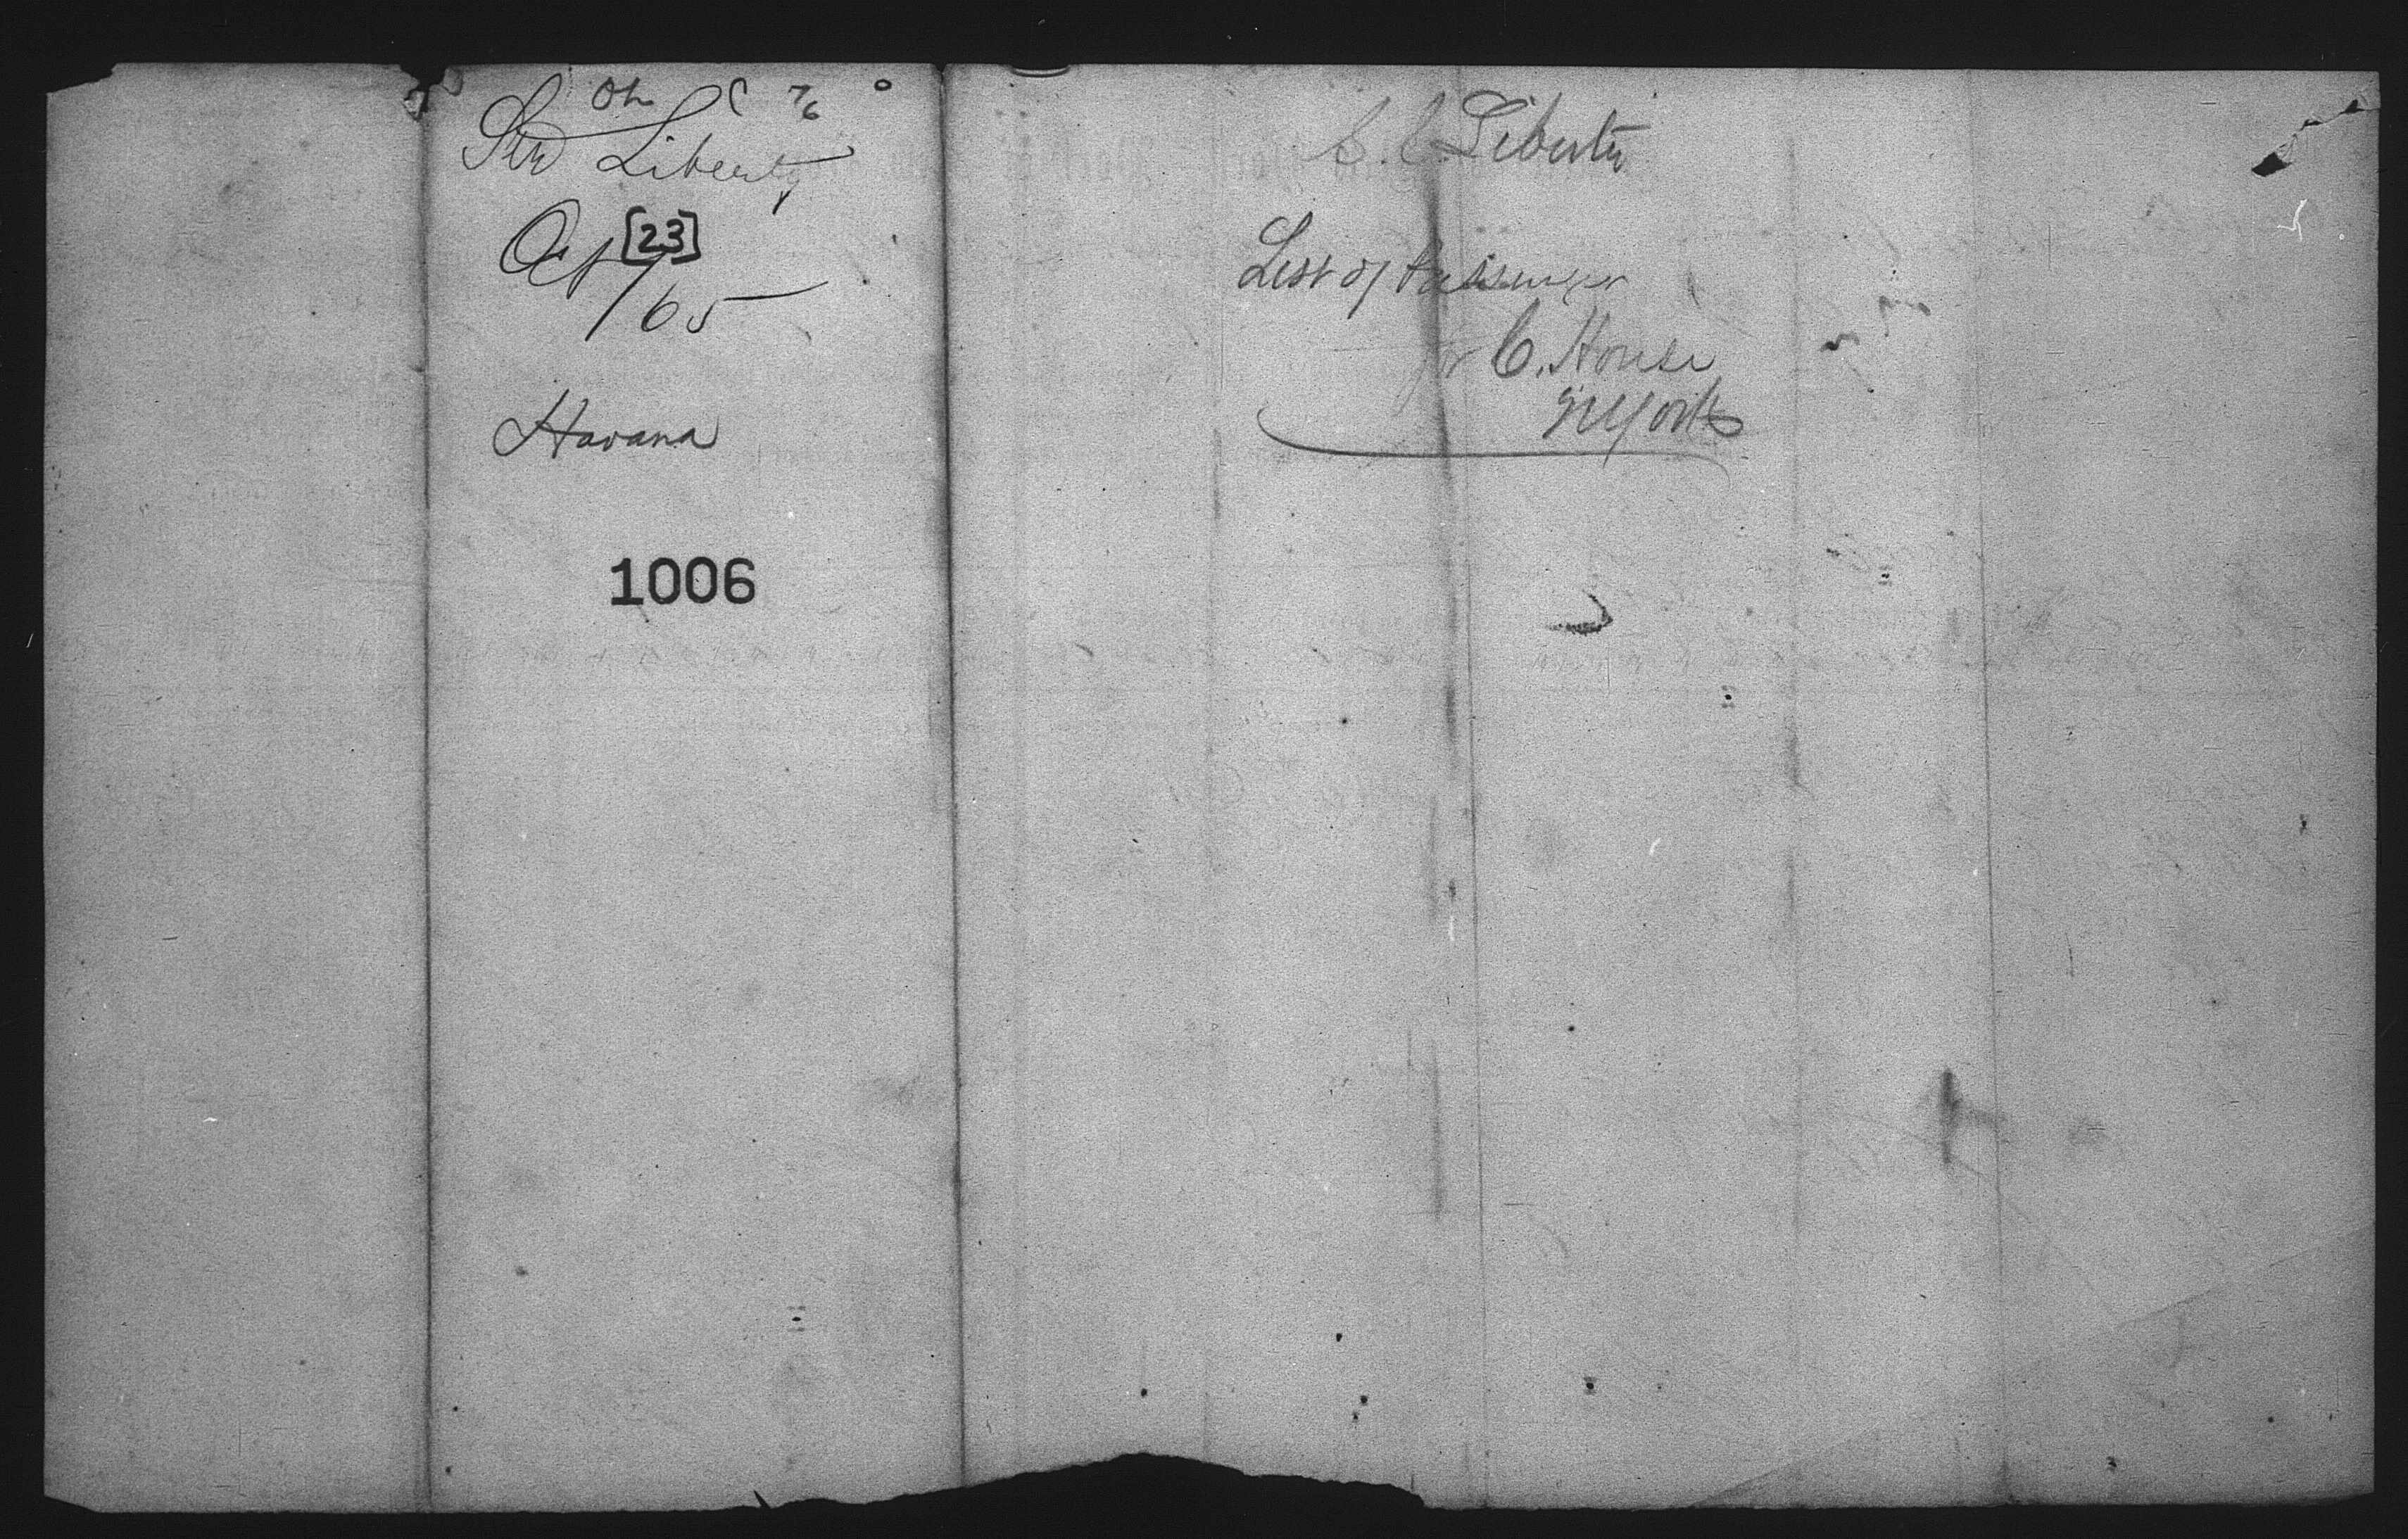 Str Liberty
[23]
/65
Havana
1006
S.S. Liberty
List of Passenger
for C. House
N York